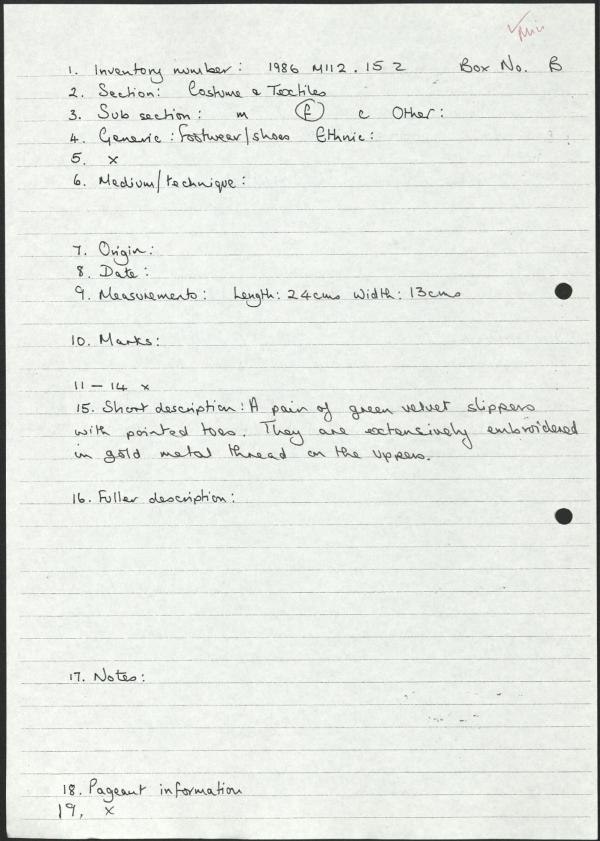 1. Inventory number: 1986 M112.15 2 Box No. B
2. Section: Costume & Textiles
3. Sub section: m f c Other:
4. Generic: footwear/shoes Ethnic:
5. x
6. Medium/technique:
7. Origin:
8. Date:
9. Measurements: Length: 24cms Width: 13cms
10. Marks:
11 – 14 x
15. Short description: A pair of green velvet slippers
with pointed toes. They are extensively embroidered
in gold metal thread on the uppers.
16. Fuller description:
17. Notes:
18. Pageant information
19, x